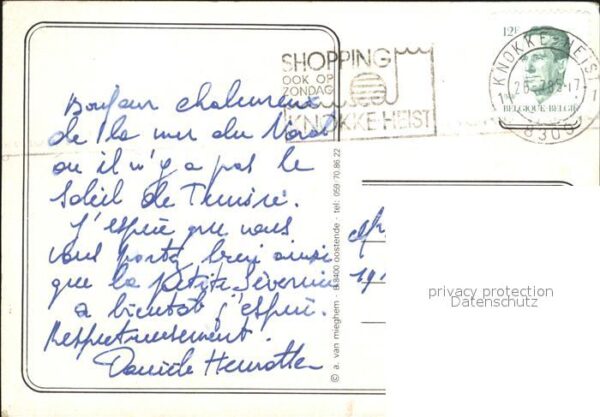 12F
SHOPPING
OOK OP
ZONDAG
KNOKKE-HEIST
KNOKKE-HEIST
1
1
8300
BELGIQUE-BELGIË
Bonjour chaleureux
de la mer du Nord
où il n'y a pas le
soleil de Tunisie.
J'espère que vous
vous portez bien ainsi
que la petite Séverine
a bientôt j'espère.
Respectueusement.
Danièle Henrotte
© a. van mieghem - B-8400 oostende - tel: 059-70.86.22
privacy protection
Datenschutz